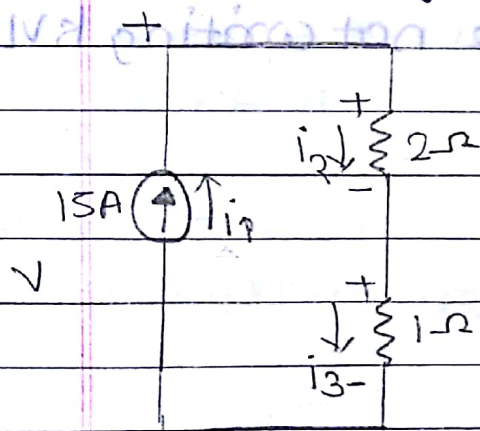 +
+
i₂↓ 2Ω
−
15A ↑i₁
V
+
↓ 1Ω
i₃−